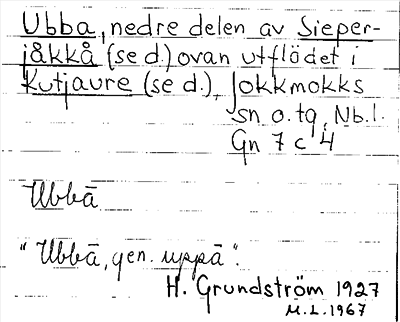 Ubba, nedre delen av Sieper-
jåkkå (se d.) ovan utflödet i
Kutjaure (se d.), Jokkmokks
sn o. tg, Nb.l.
Gn 7 c 4
Ubbā
"Ubbā, gen. uppā".
H. Grundström 1927
M.L. 1967